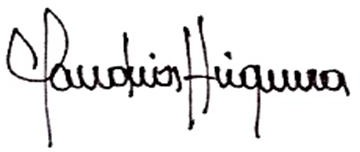 Claudia Higuera